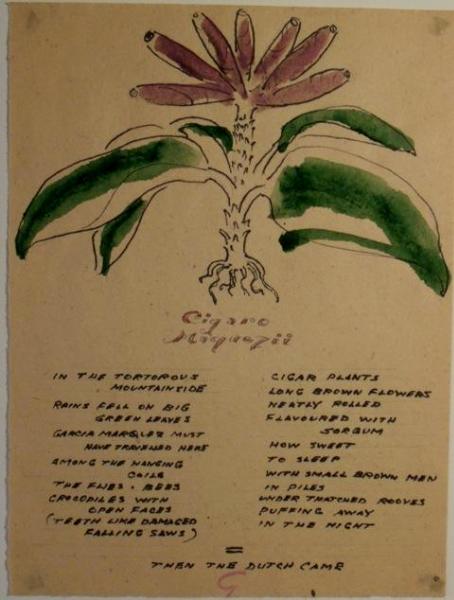 Cigaro
Maquezii
IN THE TORTOROUS
MOUNTAINSIDE
RAINS FELL ON BIG
GREEN LEAVES
GARCIA MARQUEZ MUST
HAVE TRAVELLED HERE
AMONG THE HANGING
COILS
THE FLIES + BEES
CROCODILES WITH
OPEN FACES
(TEETH LIKE DAMAGED
FALLING SAWS)
CIGAR PLANTS
LONG BROWN FLOWERS
NEATLY ROLLED
FLAVOURED WITH
SORGUM
HOW SWEET
TO SLEEP
WITH SMALL BROWN MEN
IN PILES
UNDER THATCHED ROOVES
PUFFING AWAY
IN THE NIGHT
=
THEN THE DUTCH CAME
G